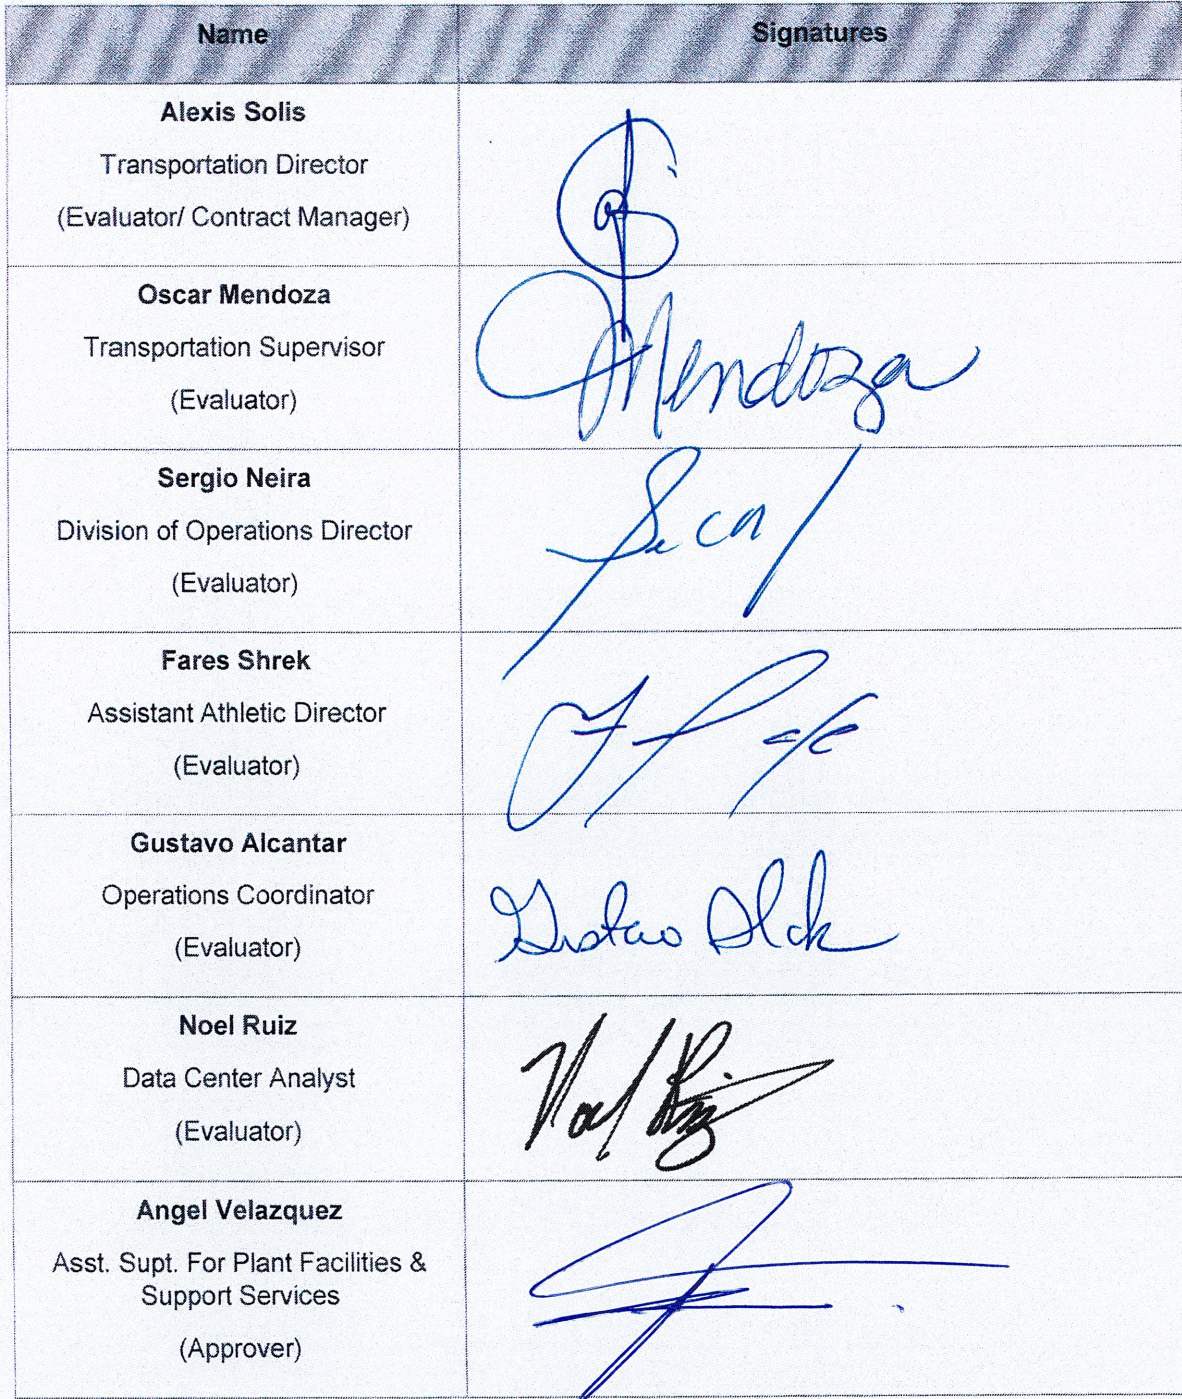 Name
Signatures
Alexis Solis
Transportation Director
(Evaluator/ Contract Manager)
Oscar Mendoza
Transportation Supervisor
(Evaluator)
Mendoza
Sergio Neira
Division of Operations Director
(Evaluator)
Fares Shrek
Assistant Athletic Director
(Evaluator)
Gustavo Alcantar
Operations Coordinator
(Evaluator)
Noel Ruiz
Data Center Analyst
(Evaluator)
Noel Ruiz
Angel Velazquez
Asst. Supt. For Plant Facilities &
Support Services
(Approver)